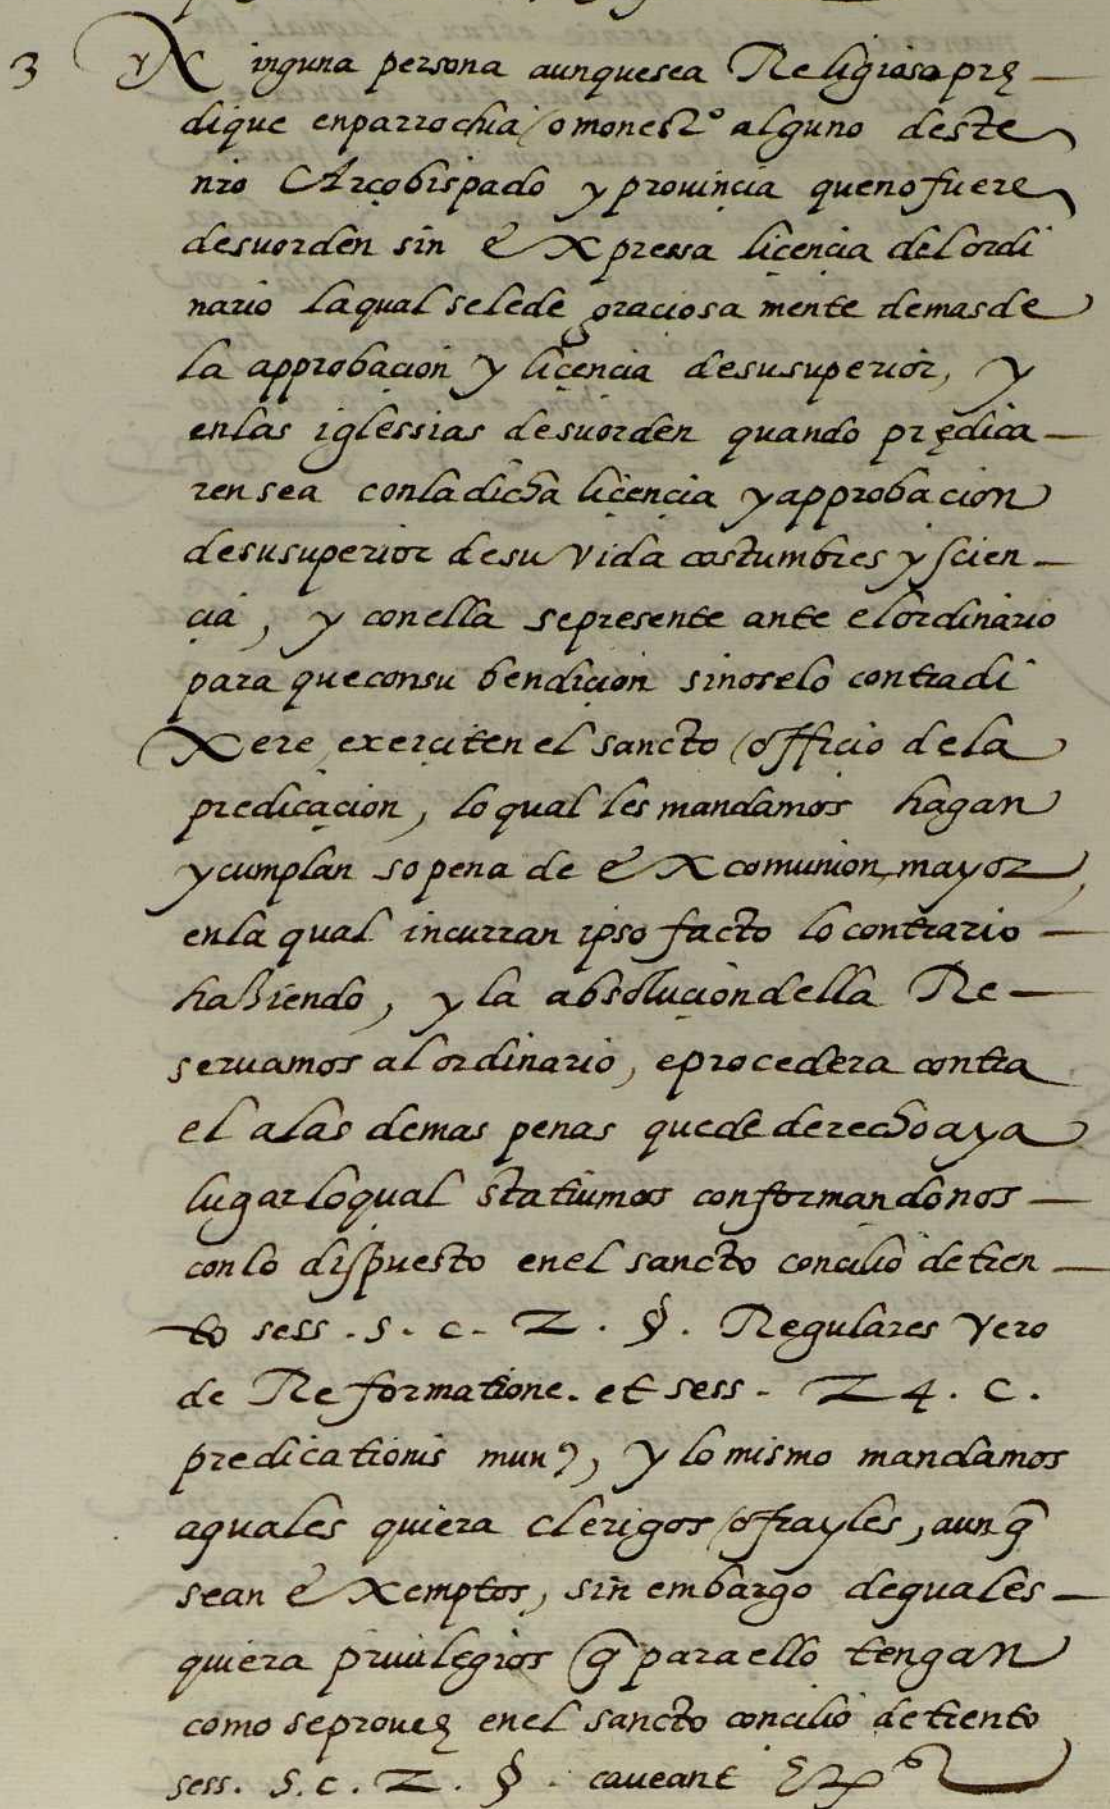 3 Ninguna persona aunquesea Religiosa prę
dique enparrochia / o monestº alguno deste
nro Arçobispado y prouinçia queno fuere
desuorden sin eXpressa liçençia del ordi
nario laqual selede graciosa mente demasde
la approbaçion y liçençia desusuperior, y
enlas iglessias desuorden quando prędica
ren sea conladicha liçençia yapprobacion
desusuperior desu vida costumbres y scien
çia, y conella sepresente ante elordinario
para queconsu bendiçion sinoselo contradi
Xere, exerçiten el sancto / officio dela
predicaçion, lo qual les mandamos hagan
ycumplan sopena de eXcomunion mayor,
enla qual incurran ipso facto locontrario
haziendo, y la absoluçiondella Re
seruamos alordinario, eprocedera contra
el alas demas penas quede derechoaya
lugar loqual statiumos conformandonos
conlo dispuesto enel sancto concilio detren
to sess. 5. c. 2. §. Regulares vero
de Reformatione. et sess. 24. c.
predicationis mun9, y lo mismo mandamos
aquales quiera clerigos / ofrayles, aunq̃
sean eXemptos, sin embargo dequales
quiera priuilegios q̃ paraello tengan
como seproueę enel sancto concilio detrento
sess. 5. c. 2. §. caueant